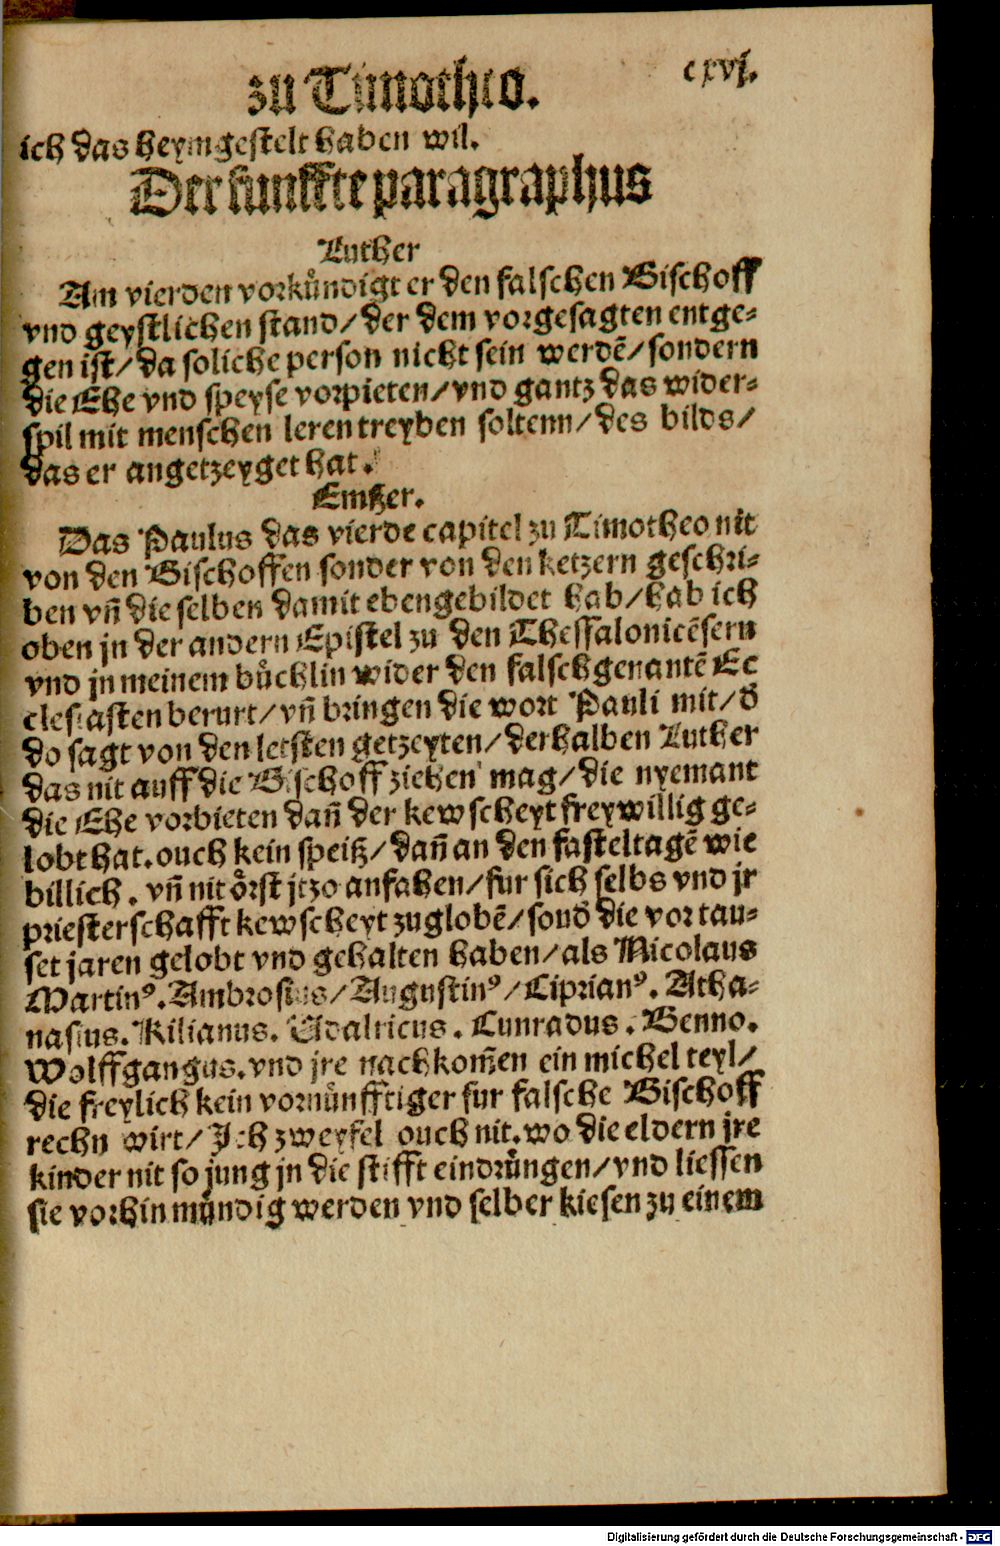 zu Timotheo.
cxvj.
ich das heymgestelt haben wil.
Der funffte paragraphus
Luther
Am vierden vorkůndigt er den falschen Bischoff
vnd geystlichen stand/ der dem vorgesagten entge-
gen ist/ da soliche person nicht sein werdē/ sondern
die Ehe vnd speyse vorpieten/ vnd gantz das wider-
spil mit menschen leren treyben soltenn/ des bilds/
das er angetzeyget hat.
Emßer.
Das Paulus das vierde capitel zu Timotheo nit
von den Bischoffen sonder von den ketzern geschri-
ben vn̄ die selben damit ebengebildet hab/ hab ich
oben jn der andern Epistel zu den Thessalonicēsern
vnd jn meinem bůchlin wider den falschgenantē Ec
clesiasten berurt/ vn̄ bringen die wort Pauli mit/ d̄
do sagt von den letsten getzeyten/ derhalben Luther
das nit auff die Bischoff ziehen mag/ die nyemant
die Ehe vorbieten dan̄ der kewscheyt freywillig ge-
lobt hat. ouch kein speiß/ dan̄ an den fasteltagē wie
billich. vn̄ nit ôrst jtzo anfahen/ fur sich selbs vnd jr
priesterschafft kewscheyt zuglobē/ sond̄ die vor tau-
set jaren gelobt vnd gehalten haben/ als Nicolaus
Martinꝰ. Ambrosius/ Augustinꝰ/ Ciprianꝰ. Atha-
nasius. Kilianus. Udalricus. Cunradus. Benno.
Wolffgangus. vnd jre nachkom̄en ein michel teyl/
die freylich kein vornůnfftiger fur falsche Bischoff
rechn wirt/ Ich zweyfel ouch nit. wo die eldern jre
kinder nit so jung jn die stifft eindrůngen/ vnd liessen
sie vorhin můndig werden vnd selber kiesen zu einem
Digitalisierung gefördert durch die Deutsche Forschungsgemeinschaft - DFG